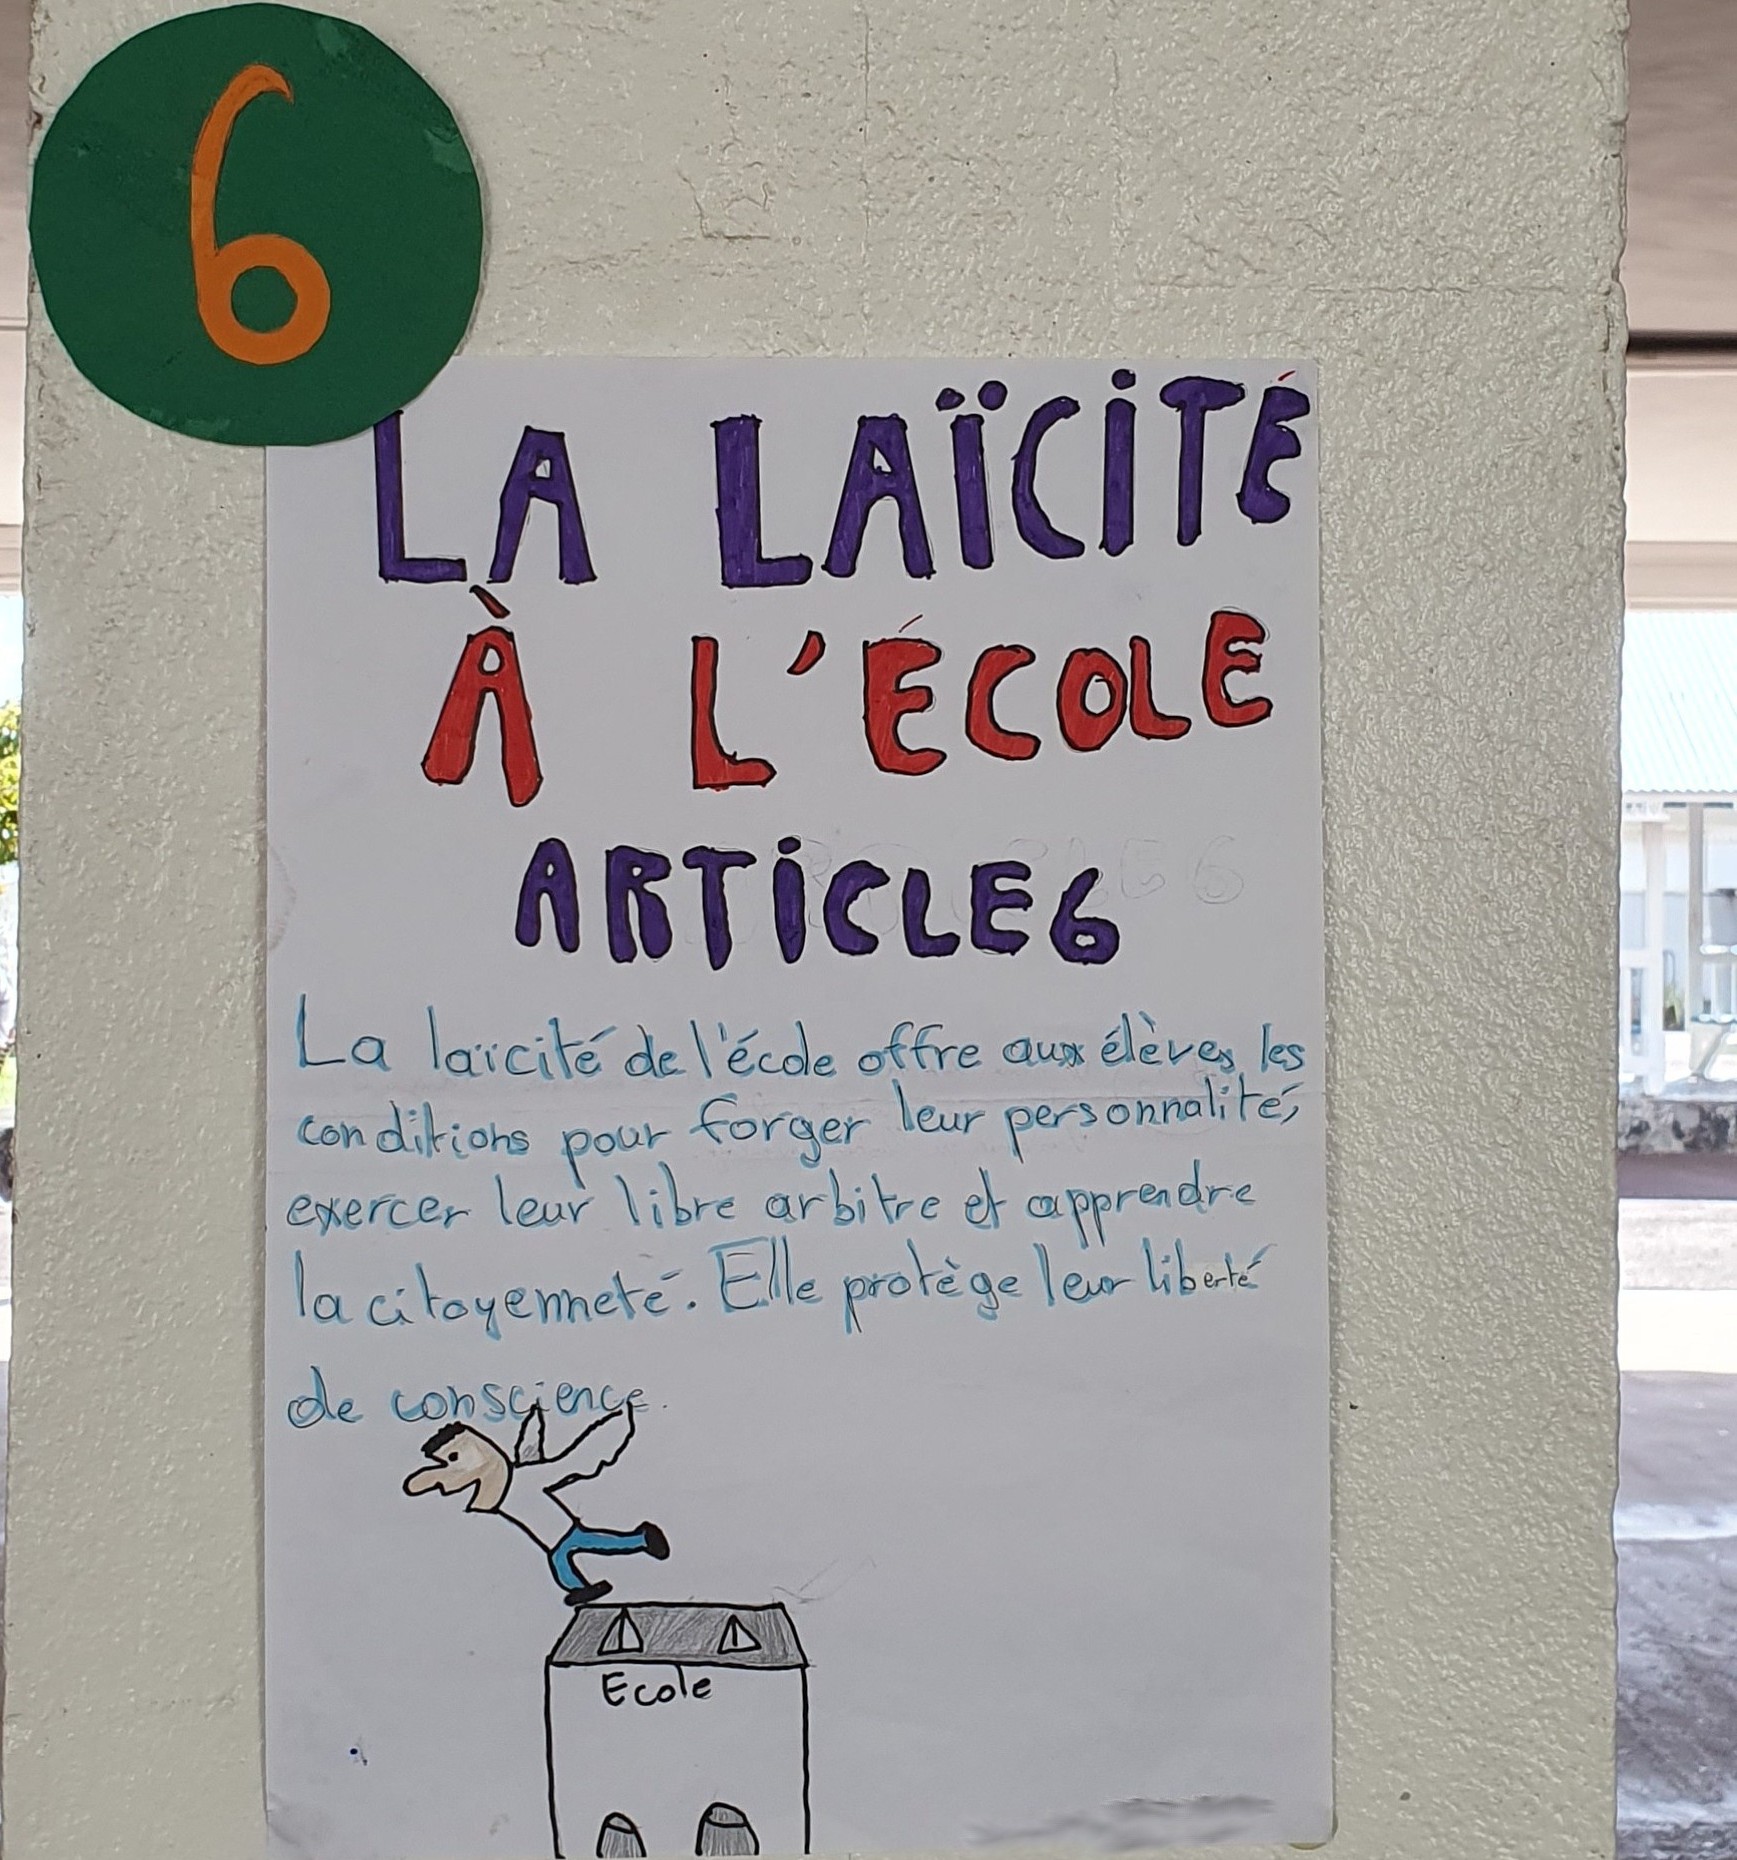 6
LA LAÏCITÉ
À L'ÉCOLE
ARTICLE 6
La laïcité de l'école offre aux élèves les
conditions pour forger leur personnalité,
exercer leur libre arbitre et apprendre
la citoyenneté. Elle protège leur liberté
de conscience.
Ecole